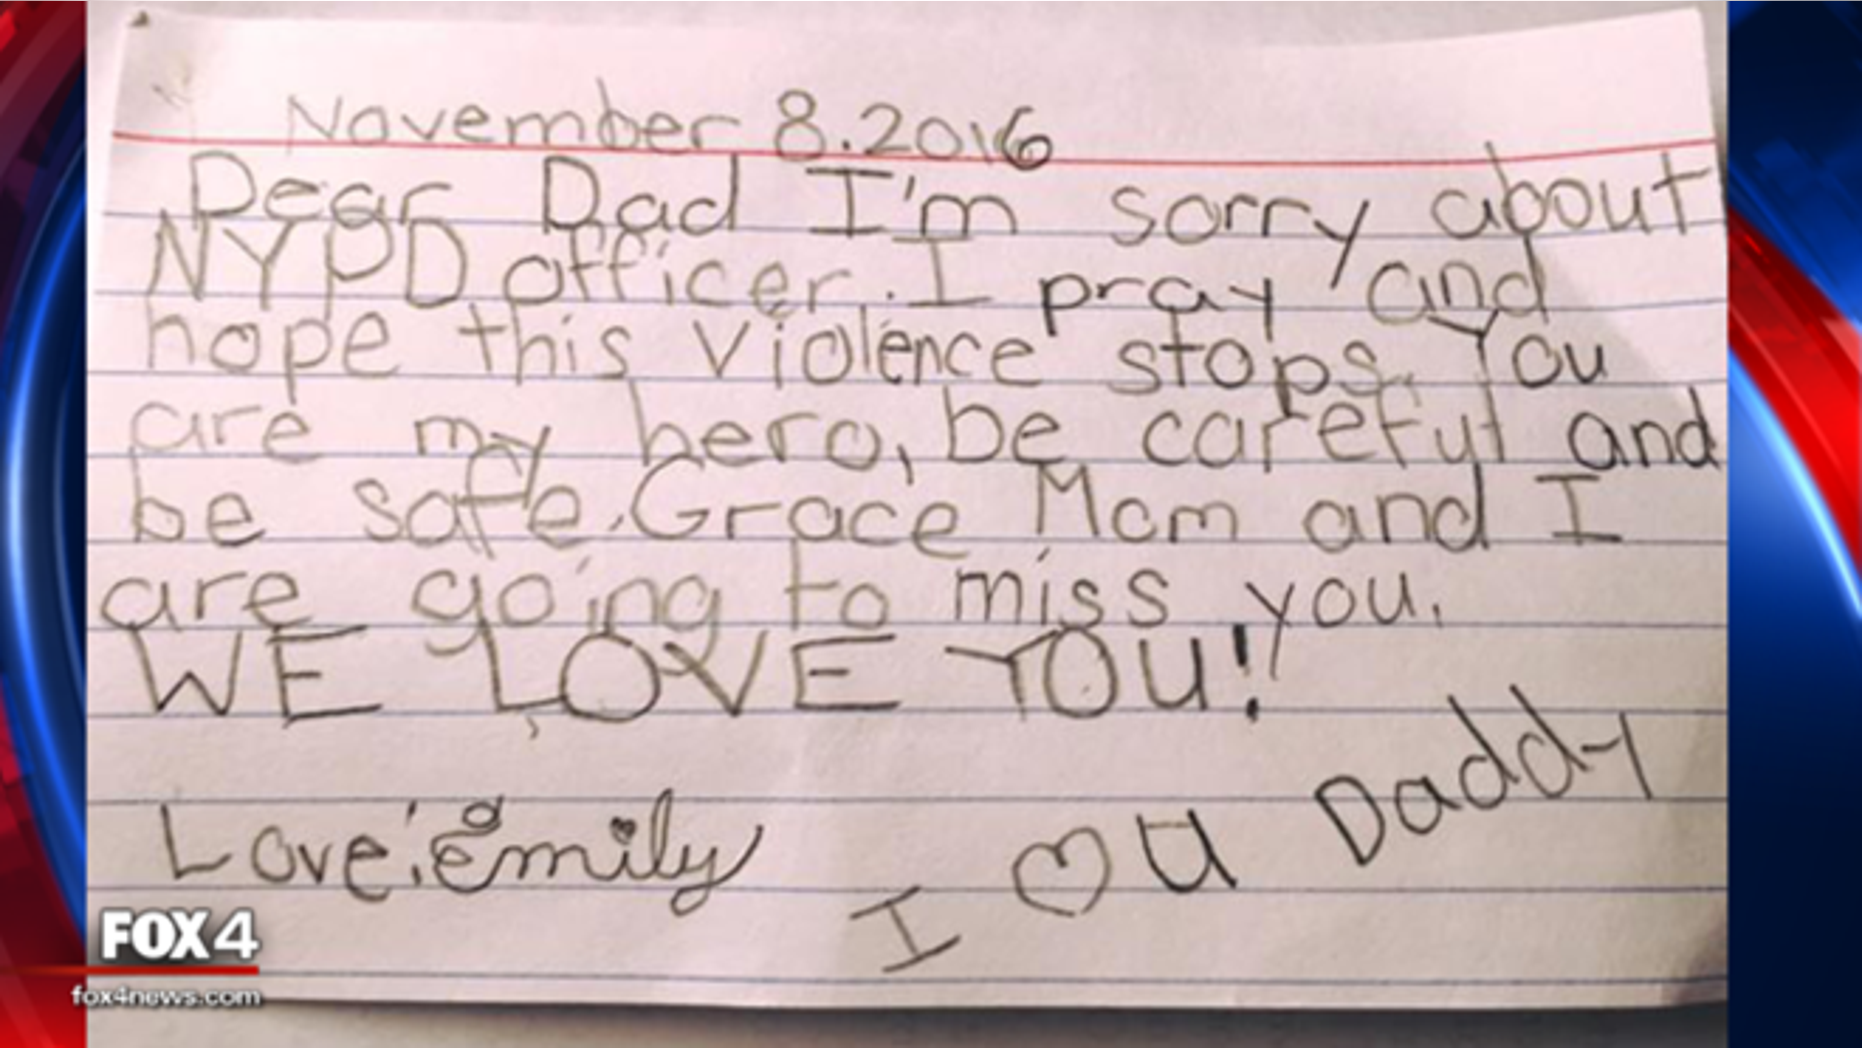 November 8.2016
Dear Dad I'm sorry about
NYPD officer. I pray and
hope this violence stops. You
are my hero, be careful and
be safe. Grace Mom and I
are going to miss you.
WE LOVE YOU!
Love, Emily
I ♡ U Daddy
FOX 4
fox4news.com